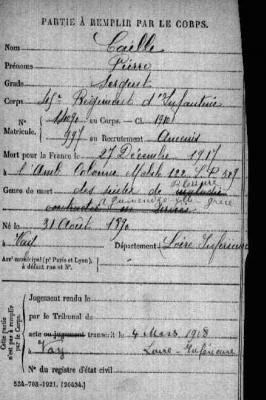 PARTIE À REMPLIR PAR LE CORPS.
Nom Caille
Prénoms Pierre
Grade Sergent
Corps 45e Régiment d'Infanterie
N° 11070 au Corps. — Cl. 1910
Matricule. 997 au Recrutement Ancenis
Mort pour la France le 27 Décembre 1917
à l'Amb. Colonne Mobile 122 S.P. 509
Genre de mort des suites de maladie
contractée en service
Né le 31 Août 1890
à Vay Département Loire Inférieure
Arr' municipal (p' Paris et Lyon),
à défaut rue et N°.
Cette partie n'est pas à remplir par le Corps.
Jugement rendu le
par le Tribunal de
acte ou jugement transcrit le 4 Mars 1918
à Vay Loire-Inférieure
N° du registre d'état civil
534-708-1921. [26434.]